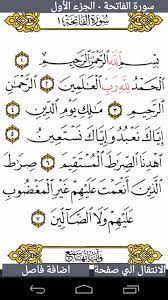 سورة الفاتحة - الجزء الأول
سُورَةُ الفَاتِحَةِ
بِسْمِ ٱللَّهِ ٱلرَّحْمَٰنِ ٱلرَّحِيمِ ١
ٱلْحَمْدُ لِلَّهِ رَبِّ ٱلْعَٰلَمِينَ ٢ ٱلرَّحْمَٰنِ
ٱلرَّحِيمِ ٣ مَٰلِكِ يَوْمِ ٱلدِّينِ ٤
إِيَّاكَ نَعْبُدُ وَإِيَّاكَ نَسْتَعِينُ ٥
ٱهْدِنَا ٱلصِّرَٰطَ ٱلْمُسْتَقِيمَ ٦ صِرَٰطَ
ٱلَّذِينَ أَنْعَمْتَ عَلَيْهِمْ غَيْرِ ٱلْمَغْضُوبِ
عَلَيْهِمْ وَلَا ٱلضَّآلِّينَ ٧
الانتقال الي صفحة اضافة فاصل